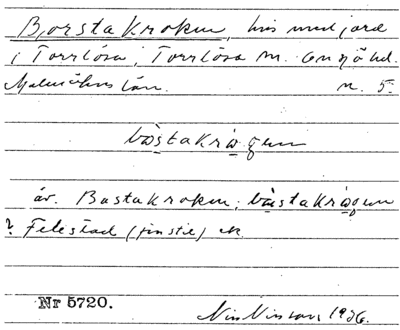 Bjorstakroken, hus med jord
i Torrlösa, Torrlösa sn. Onsjö hd.
Malmöhus län. n. 5.
bɷstakrɷgen
äv. Bustakroken; bustakrɷgen
? Felestad (finstil) ek
Nr 5720.
Nils Nilsson 1936.